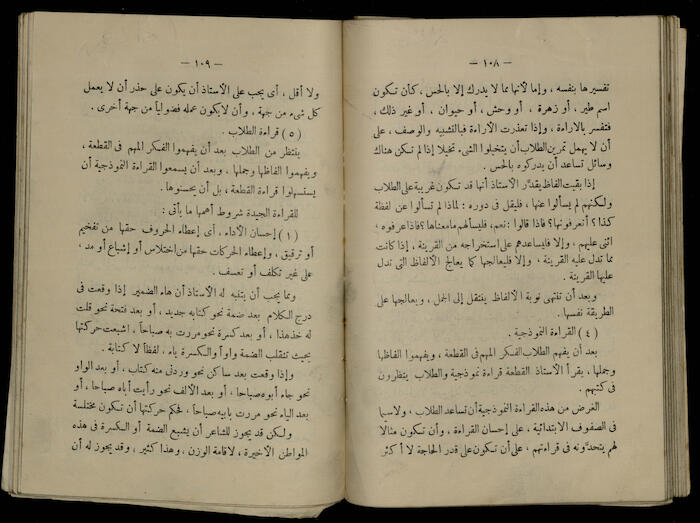 — ١٠٨ —
تفسيرها بنفسه ، وإما لأنها مما لا يدرك إلا بالحس ، كأن تكون
اسم طير ، أو زهرة ، أو وحش ، أو حيوان ، أو غير ذلك ،
فتفسر بالاراءة ، وإذا تعذرت الاراءة فبالتشبيه والوصف ، على
أن لا يهمل تمرين الطلاب أن يتخيلوا الشىء تخيلا إذا لم تكن هناك
وسائل تساعد أن يدركوه بالحس .
إذا بقيت ألفاظ يقدّر الأستاذ أنها قد تكون غريبة على الطلاب
ولكنهم لم يسألوا عنها ، فليقل فى دوره : لماذا لم تسألوا عن لفظة
كذا ؟ أتعرفونها ؟ فاذا قالوا : نعم ، فليسألهم ما معناها ؟ فاذا عرفوه ،
اثنى عليهم ، وإلا فليساعدهم على استخراجه من القرينة ، إذا كانت
مما تدل عليه القرينة ، وإلا فليعالجها كما يعالج الألفاظ التى تدل
عليها القرينة .
وبعد أن تنتهى نوبة الألفاظ ينتقل إلى الجمل ، ويعالجها على
الطريقة نفسها .
( ٤ ) القراءة النموذجية .
بعد أن يفهم الطلاب الفكر المهم فى القطعة ، ويفهموا الفاظها
وجملها ، يقرأ الأستاذ القطعة قراءة نموذجية والطلاب ينظرون
فى كتبهم .
الغرض من هذه القراءة النموذجية أن تساعد الطلاب ، ولا سيما
فى الصفوف الابتدائية ، على إحسان القراءة ، وأن تكون مثالا
لهم يتحدّونه فى قراءتهم ، على أن تكون على قدر الحاجة لا أكثر
— ١٠٩ —
ولا أقل ، أى يجب على الأستاذ أن يكون على حذر أن لا يعمل
كل شىء من جهة ، وأن لا يكون عمله فضولياً من جهة أخرى .
( ٥ ) قراءة الطلاب .
ينتظر من الطلاب بعد أن يفهموا الفكر المهم فى القطعة ،
ويفهموا الفاظها وجملها ، وبعد أن يسمعوا القراءة النموذجية أن
يستسهلوا قراءة القطعة ، بل أن يحسنوها .
للقراءة الجيدة شروط أهمها ما يأتى :
( ١ ) إحسان الأداء ، أى إعطاء الحروف حقها من تفخيم
أو ترقيق ، وإعطاء الحركات حقها من اختلاس أو إشباع أو مد ،
على غير تكلف أو تعسف .
ومما يجب أن يتنبه له الأستاذ أن هاء الضمير إذا وقعت فى
درج الكلام بعد ضمة نحو كتابه جديد ، أو بعد فتحة نحو قلت
له خذ هذا ، أو بعد كسرة نحو مررت به صباحاً ، اشبعت حركتها
بحيث تنقلب الضمة واواً والكسرة ياء ، لفظاً لا كتابة .
وإذا وقعت بعد ساكن نحو وردنى منه كتاب ، أو بعد الواو
نحو جاء أبوه صباحا ، أو بعد الألف نحو رأيت أباه صباحا ، أو
بعد الياء نحو مررت بابيه صباحاً ، فحكم حركتها أن تكون مختلسة
ولكن قد يجوز للشاعر أن يشبع الضمة أو الكسرة فى هذه
المواطن الأخيرة ، لاقامة الوزن ، وهذا كثير ، وقد يجوز له أن